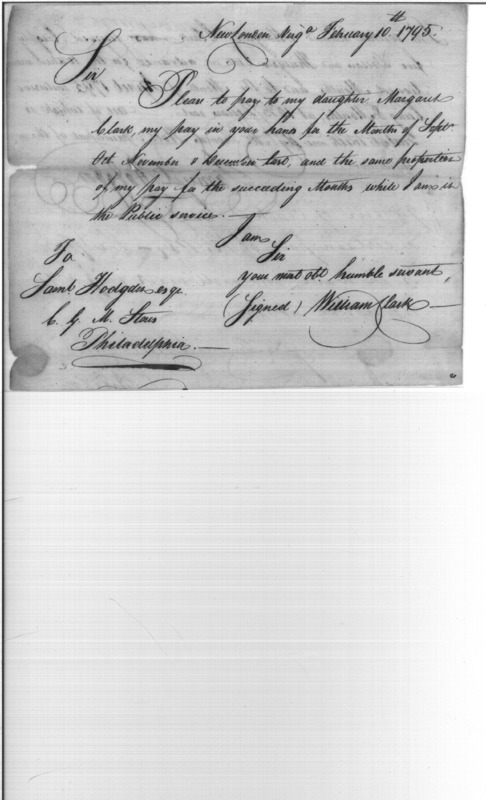 New London Virga. February 10th. 1795.
Sir
Please to pay to my daughter Margaret
Clark, my pay in your hands for the Months of Septr.
Oct. November & December last, and the same proportion
of my pay for the succeeding Months while I am in
the Public service.—
I am
Sir
your most obt. humble servant,
(Signed) William Clark —
To
Saml. Hodgdon esqr.
C. G. M. Stores
Philadelphia.—